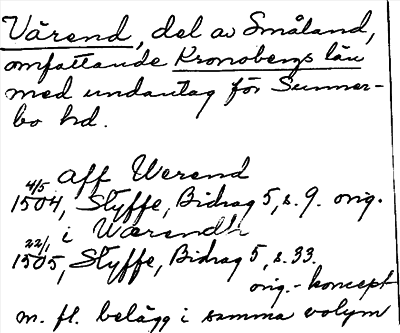 Värend, del av Småland,
omfattande Kronobergs län
med undantag för Sunner-
bo hd.
aff Werend
4/5 1504, Styffe, Bidrag 5, s. 9. orig.
i Wærendh
22/1 1505, Styffe, Bidrag 5, s. 33.
orig.-koncept
m. fl. belägg i samma volym